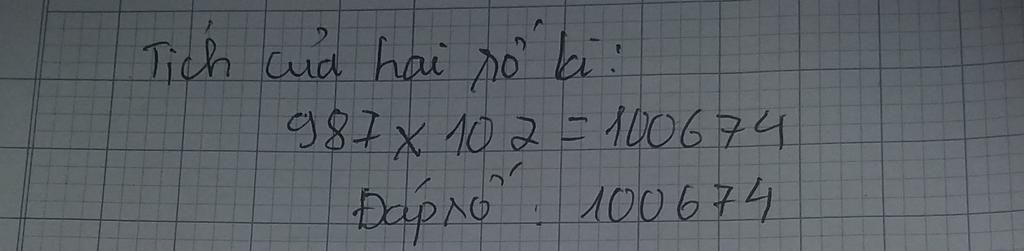 Tích của hai số là:
987 x 102 = 100674
Đáp số: 100674